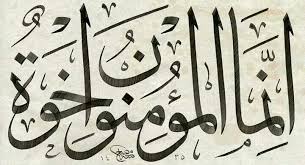 إنما المؤمنون إخوة